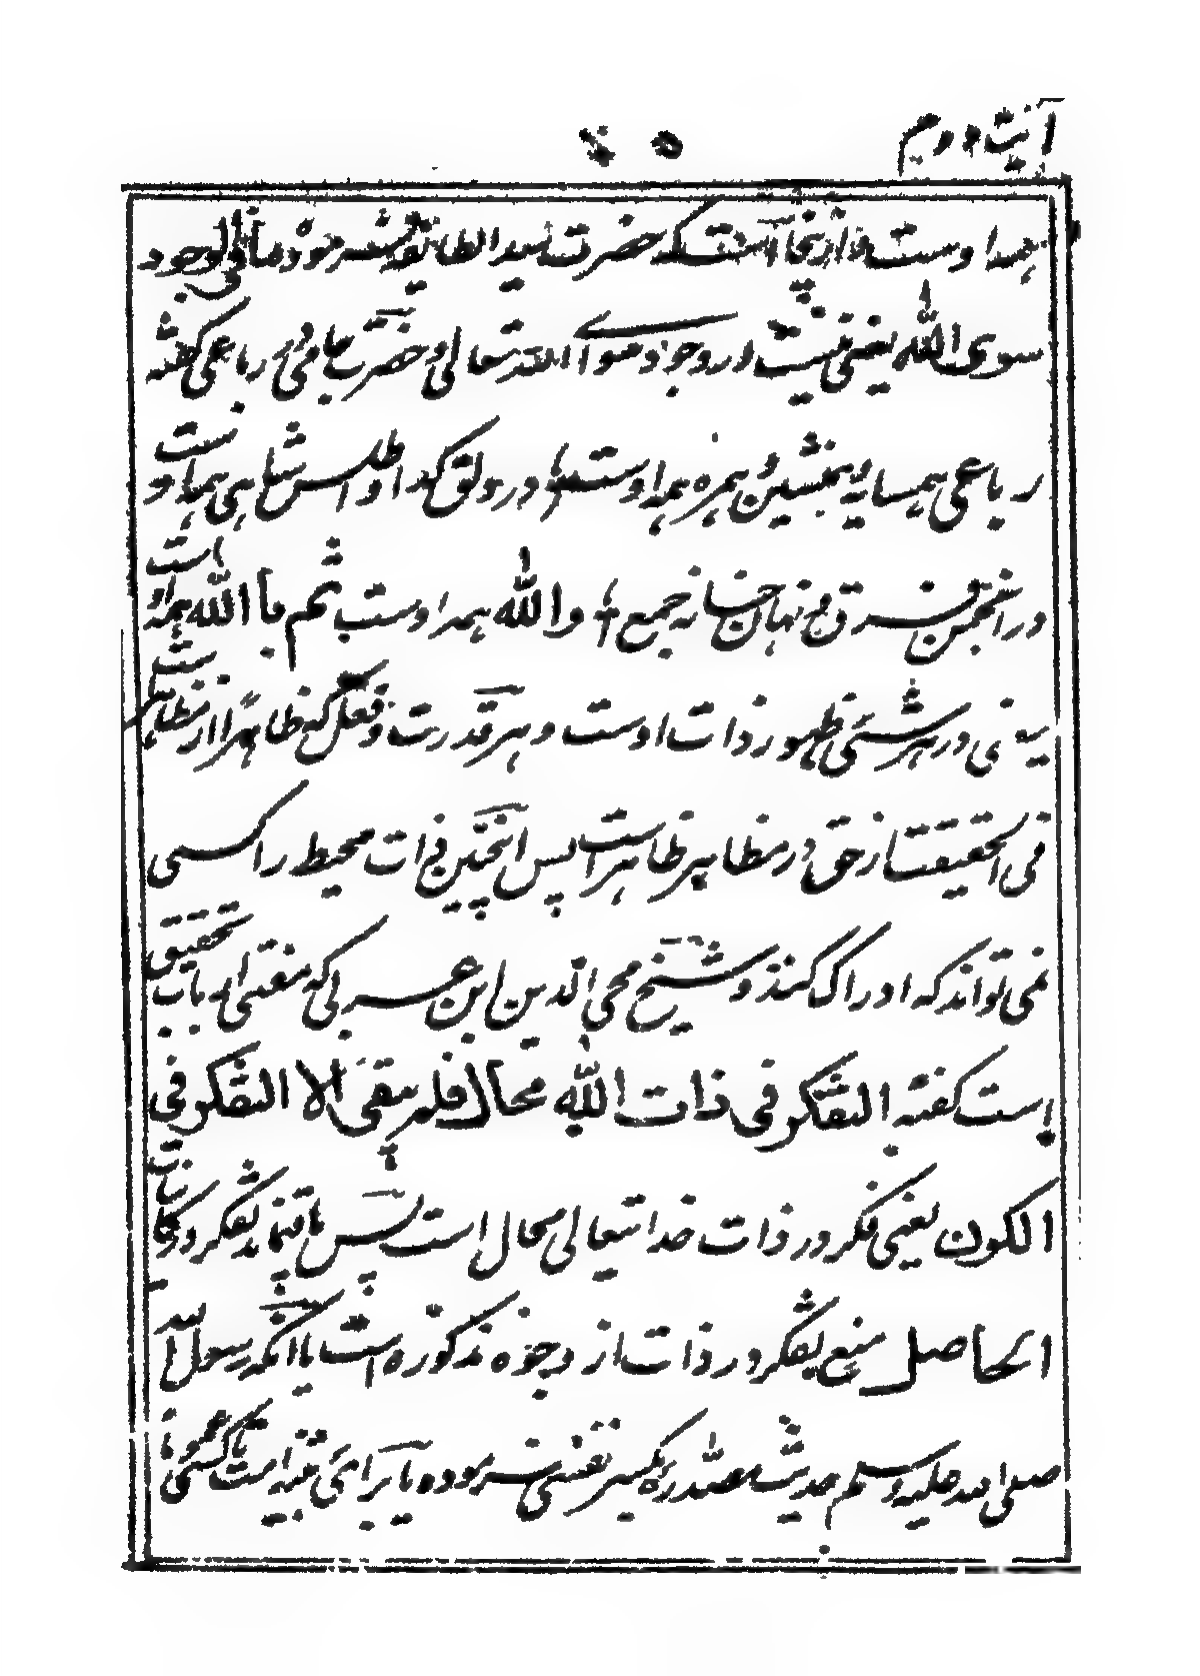 آیت دوم
همه اوست و ازینجاست که حضرت سید الطائفه فرموده ما فی الوجود
سوی الله یعنی نیست در وجود سوای الله تعالی و حضرت جامی رباعی گفته
رباعی همسایه و همنشین و همره همه اوست در دلق گدا و اطلس شاهی همه اوست
در انجمن فرق و نهان خانه جمع والله همه اوست ثم بالله همه اوست
یعنی در هر شئی ظهور ذات اوست و هر قدرت و فعل که ظاهرا از مظاهر است
فی الحقیقت از حق در مظاهر ظاهر است پس اینچنین ذات محیط را کسی
نمی تواند که ادراک کند و شیخ محی الدین ابن عربی که مفتی ارباب تحقیق
است گفته التفکر فی ذات الله محال فلم یبقی الا التفکر فی
الکون یعنی فکر در ذات خدا تعالی محال است پس باقیماند تفکر در کائنات
الحاصل منع تفکر در ذات از وجوه مذکوره است یا آنکه رسول الله
صلی الله علیه وسلم حدیث مصدره بکسر نفسی فرموده یا برای تنبیه امت کسی